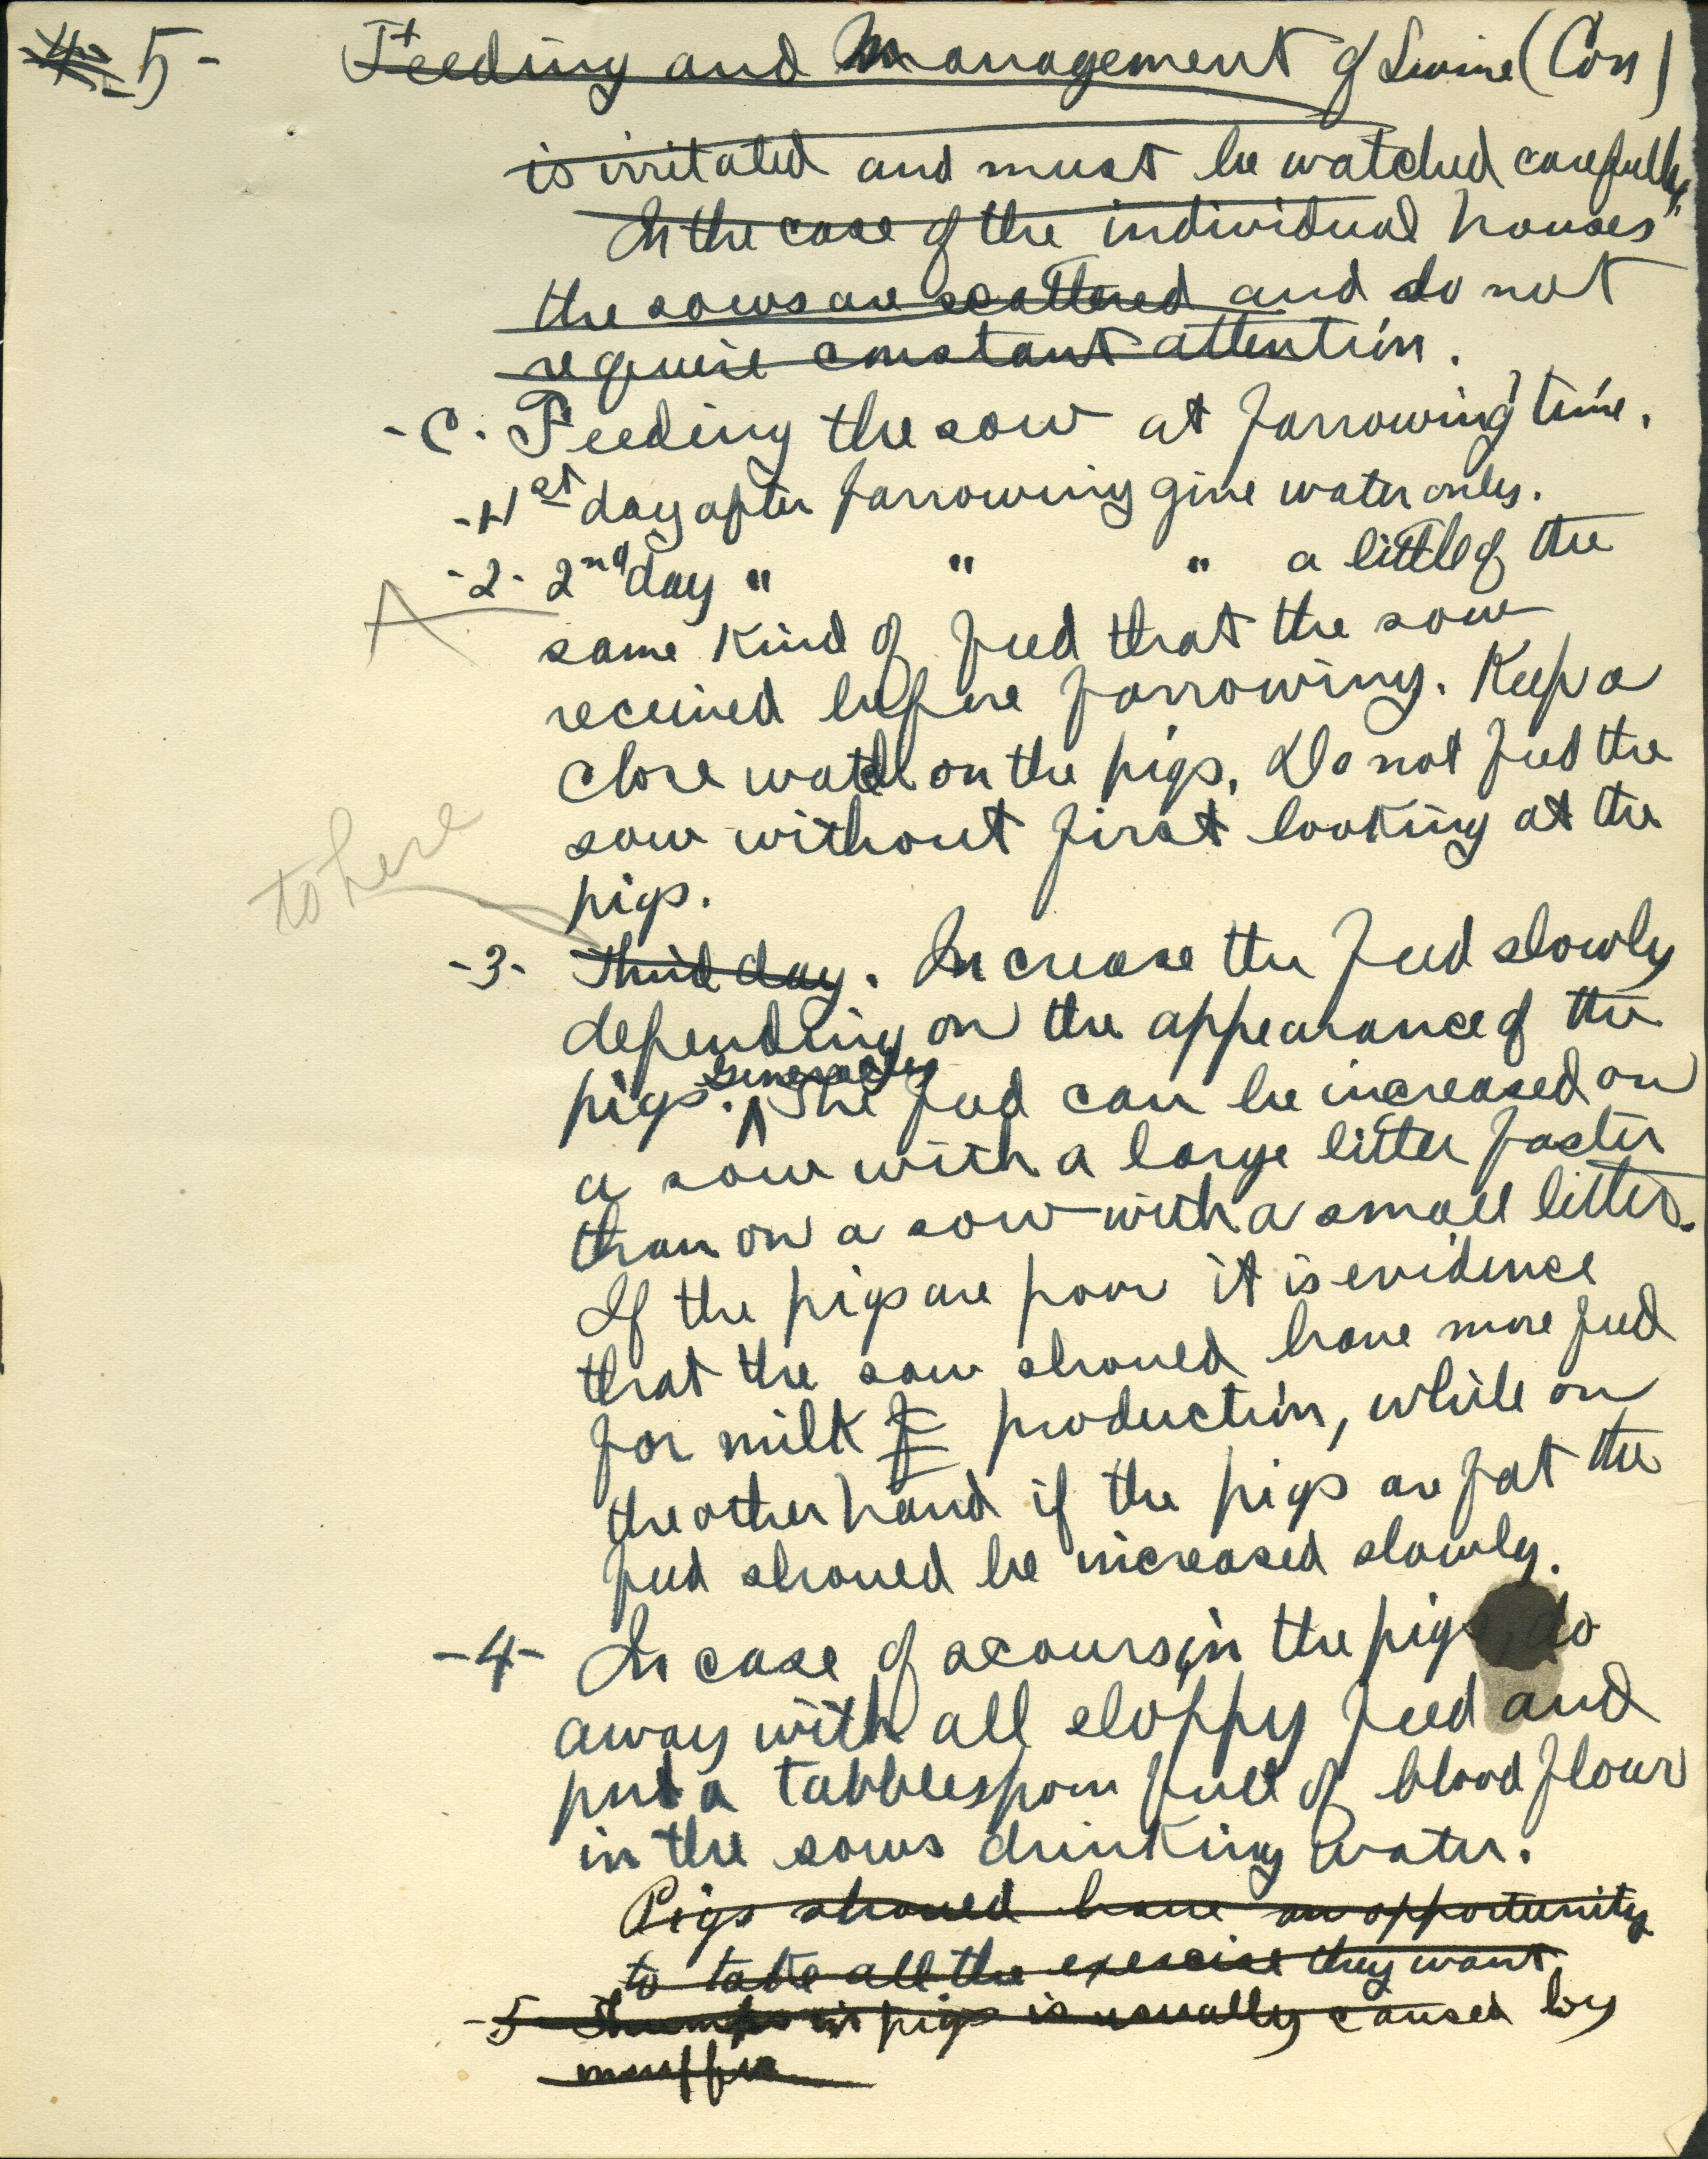 -4- -5- Feeding and Management of Swine (Con)
is irritated and must be watched carefully.
In the case of the individual houses
the sows are scattered and do not
require constant attention.
-C. Feeding the sow at farrowing time.
-1- 1st day after farrowing give water only.
-2- 2nd day " " " a little of the
same kind of feed that the sow
received before farrowing. Keep a
close watch on the pigs. Do not feed the
sow without first looking at the
pigs.
to here
-3- Third day. Increase the feed slowly
depending on the appearance of the
pigs. Generally The feed can be increased on
a sow with a large litter faster
than on a sow with a small litter.
If the pigs are poor it is evidence
that the sow should have more feed
for milk f production, while on
the other hand if the pigs are fat the
feed should be increased slowly.
-4- In case of scours in the pigs, do
away with all sloppy feed and
put a tabblespoon full of blood flour
in the sows drinking water.
Pigs should have an opportunity
to take all the exercise they want.
-5- Thumps in pigs is usually caused by